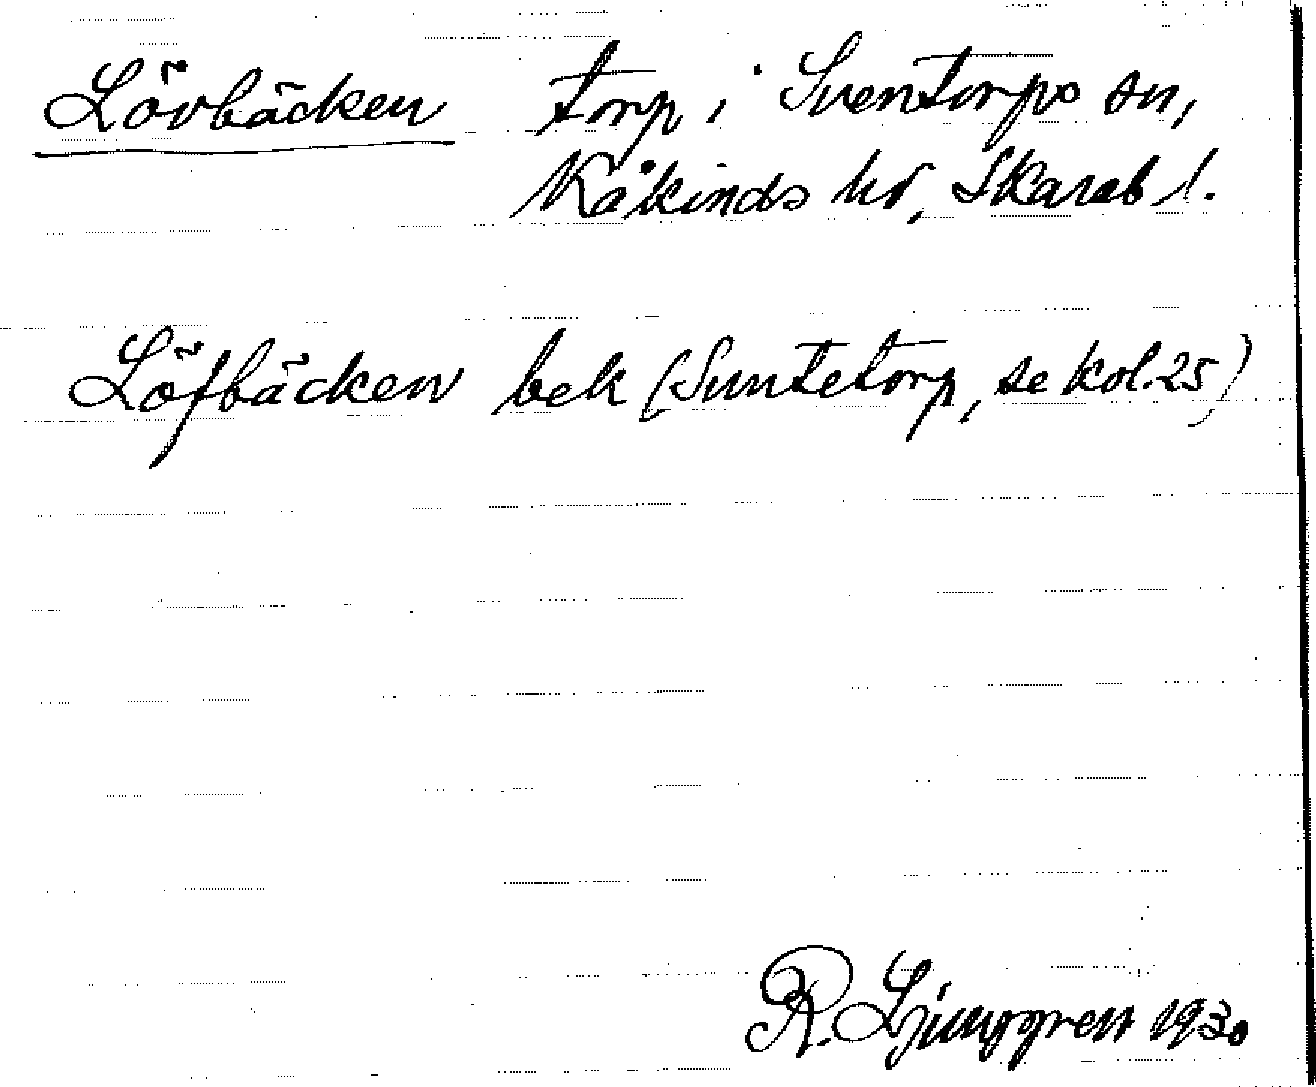 Lövbäcken torp i Sventorps sn,
Kåkinds hd, Skarab l.
Löfbäcken bek (Suntetorp, se kol. 25)
R. Ljunggren 1930